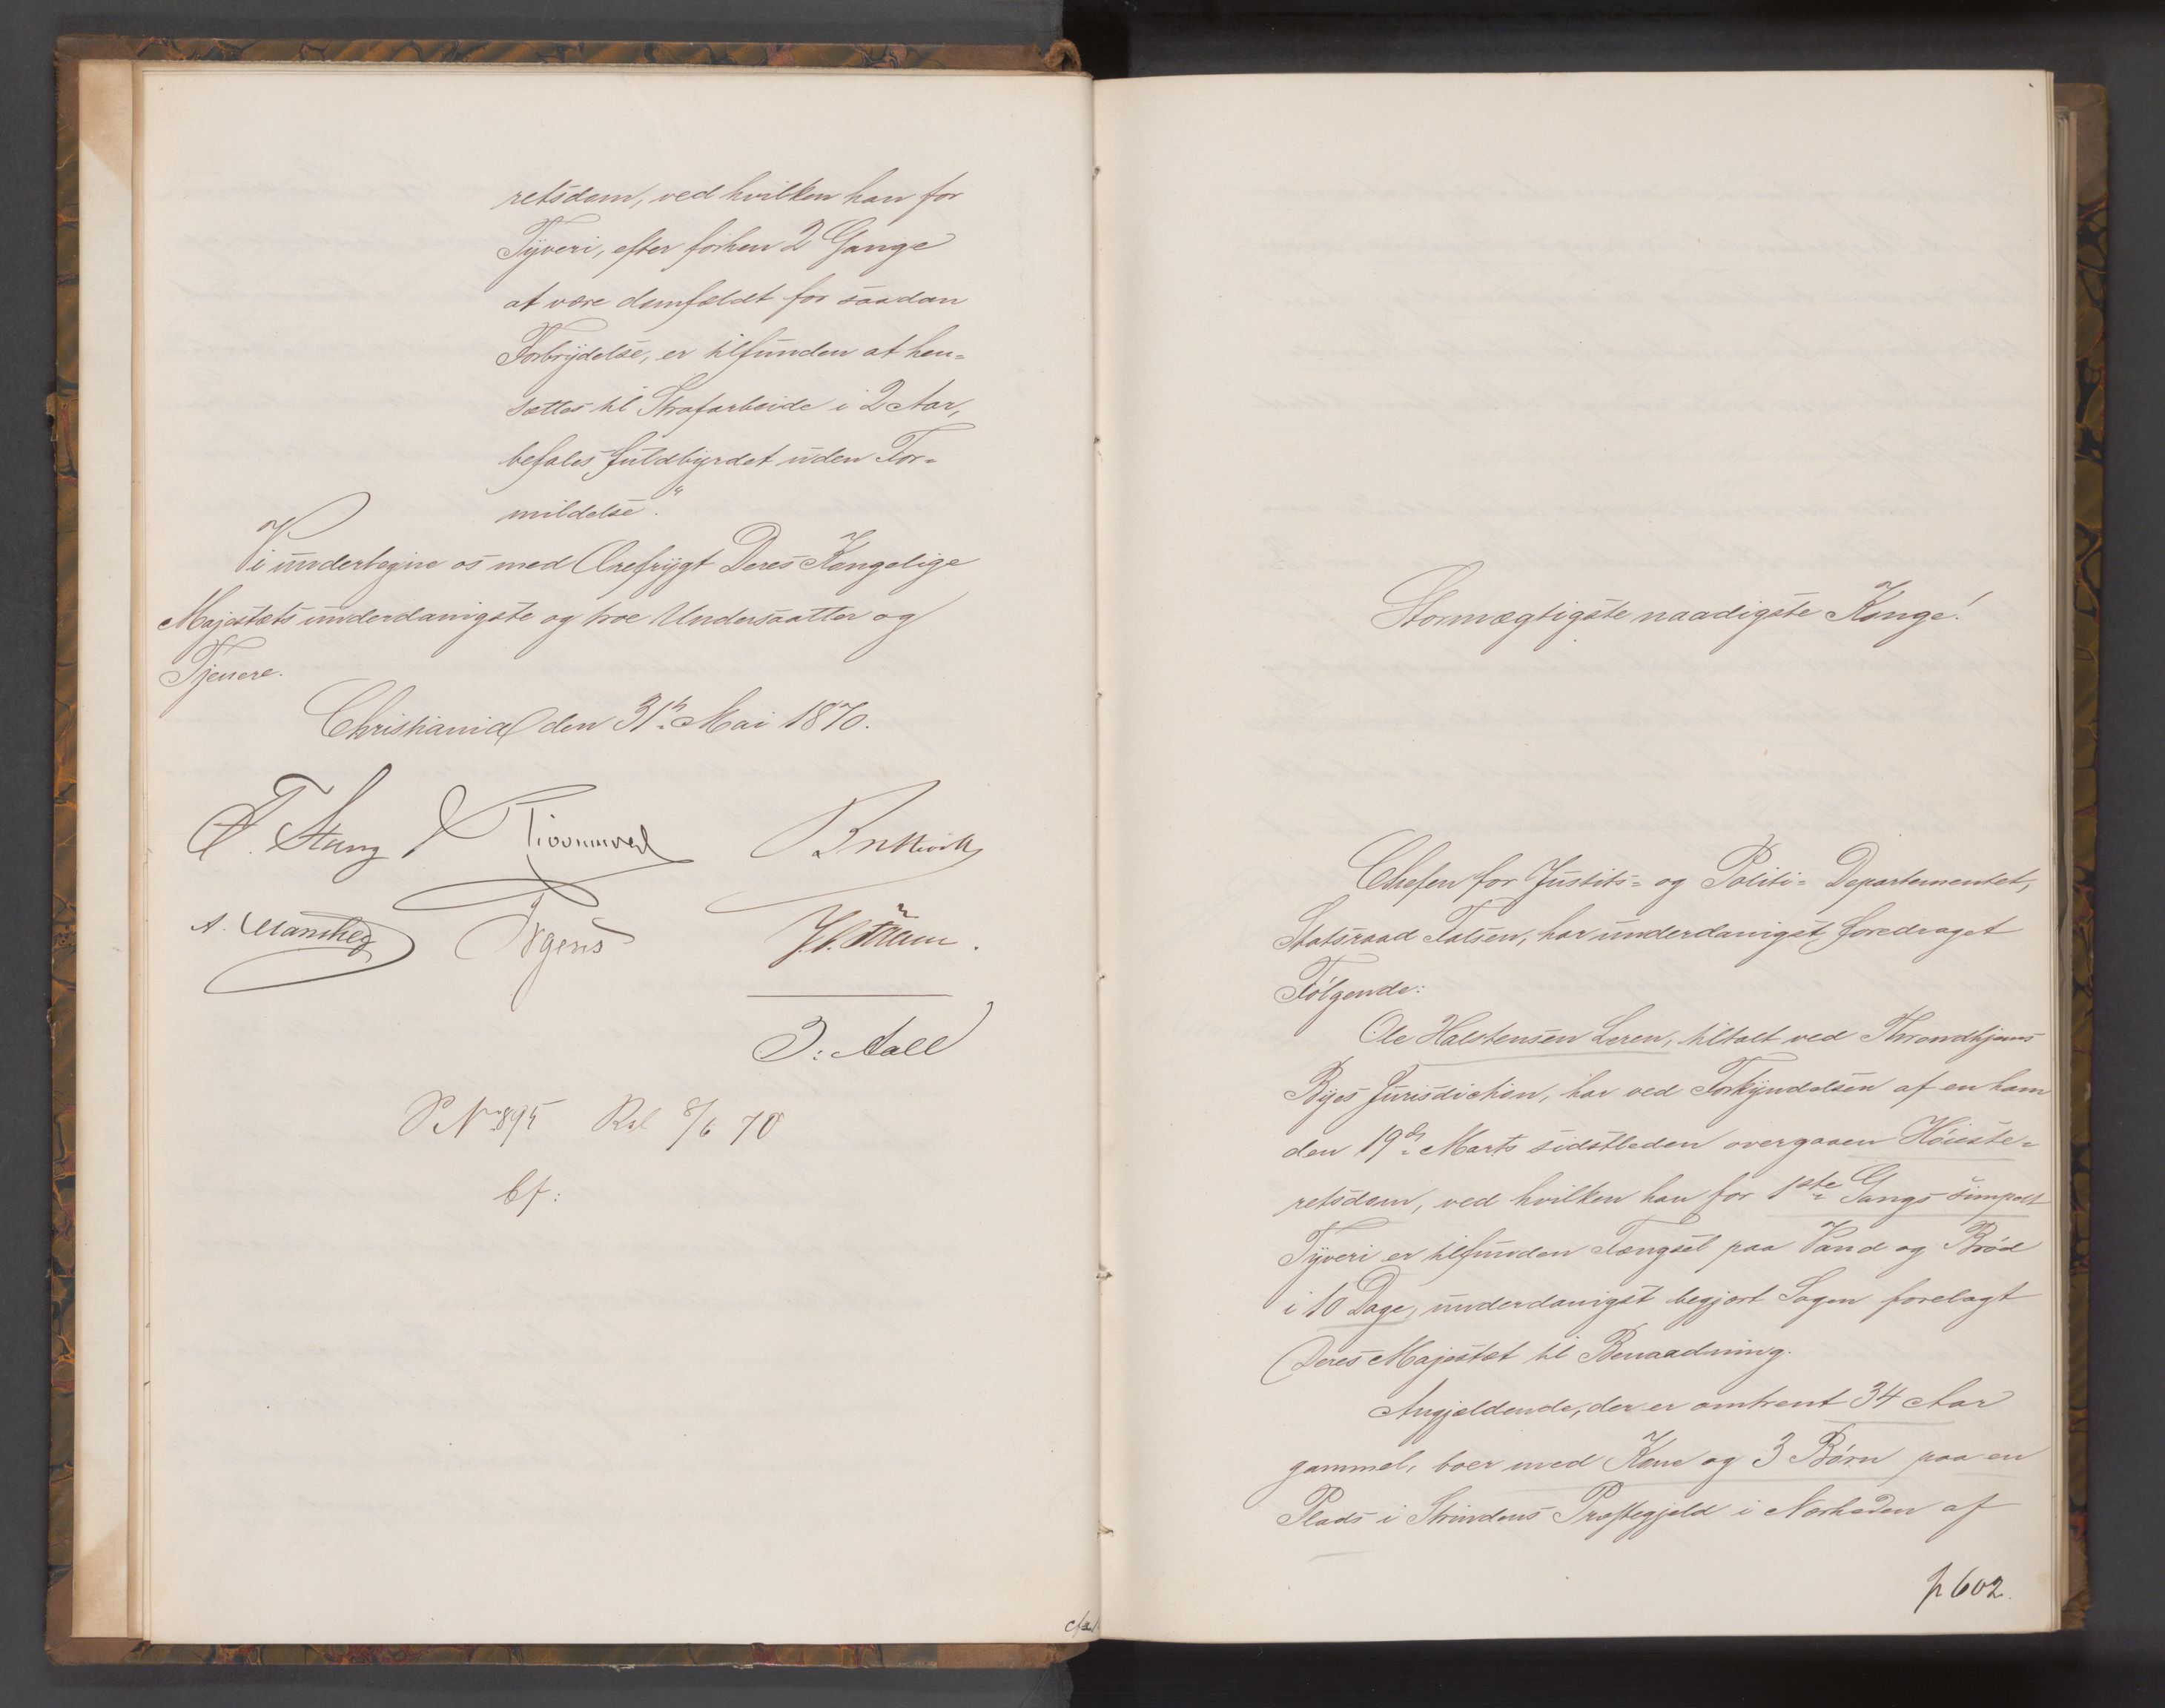 retsdom, ved hvilken han for
Tyveri, efter forhen 2 Gange
at være domfældt for saadan
Forbrydelse, er tilfunden at hen-
sættes til Strafarbeide i 2 Aar,
befales fuldbyrdet uden For-
mildelse."
Vi undertegne os med Ærefrygt Deres Kongelige
Majestæts underdanigste og troe Undersaatter og
Tjenere.
Christiania den 31te Mai 1870.
F. Stang Bretteville
A. Manthey Irgens
J: Aall
P No 895 Rsl 8/6 70
bf:
Stormægtigste naadigste Konge!
Chefen for Justits- og Politi-Departementet,
Statsraad Falsen, har underdanigst foredraget
Følgende:
Ole Halstensen Leren, tiltalt ved Throndhjems
Byes Jurisdiction, har ved Forkyndelsen af en ham
den 19de Marts sidstleden overgaaen Høieste-
retsdom, ved hvilken han for 1ste Gangs simpelt
Tyveri er tilfunden Fængsel paa Vand og Brød
i 10 Dage, underdanigst begjært Sagen forelagt
Deres Majestæt til Benaadning.
Angjældende, der er omtrent 34 Aar
gammel, boer med Kone og 3 Børn paa en
Plads i Strindens Præstegjeld i Nærheden af
p 602.